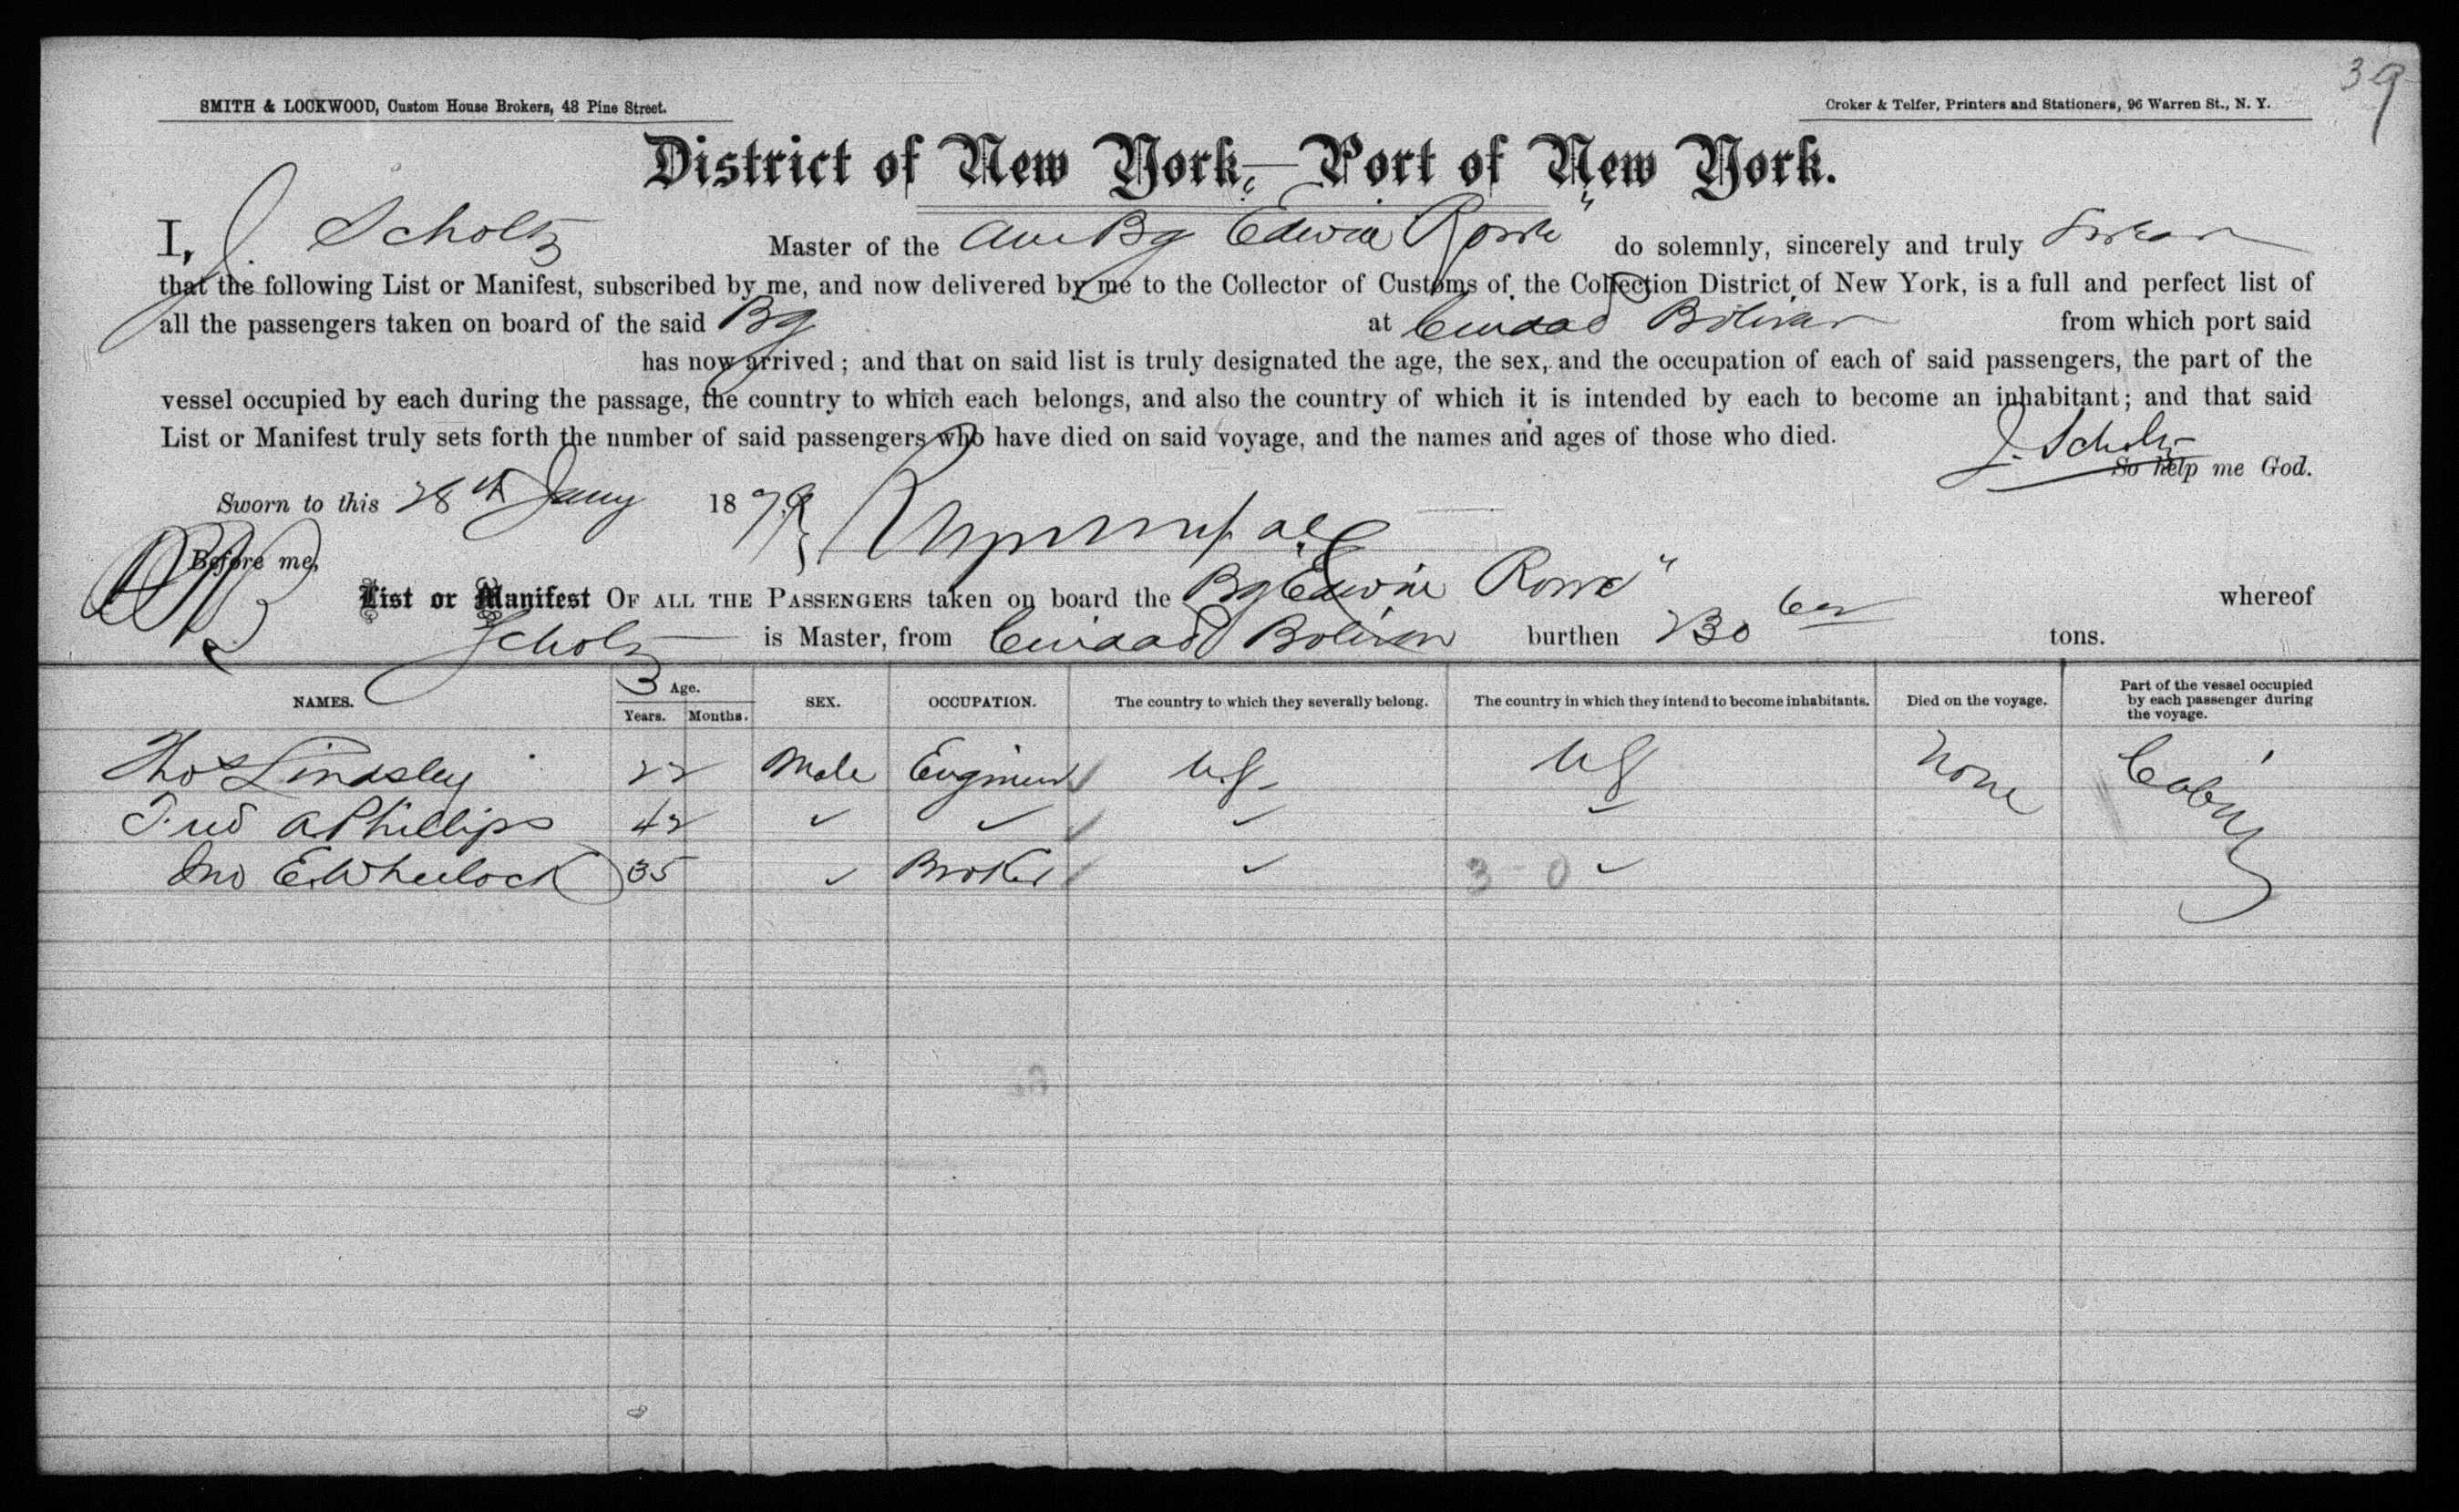 39
SMITH & LOCKWOOD, Custom House Brokers, 48 Pine Street.
Croker & Telfer, Printers and Stationers, 96 Warren St., N. Y.
District of New York,—Port of New York.
I, J Scholtz Master of the Am Bg Edwin Rowe" do solemnly, sincerely and truly Swear
that the following List or Manifest, subscribed by me, and now delivered by me to the Collector of Customs of the Collection District of New York, is a full and perfect list of
all the passengers taken on board of the said Bg at Ciudad Bolivar from which port said
has now arrived; and that on said list is truly designated the age, the sex, and the occupation of each of said passengers, the part of the
vessel occupied by each during the passage, the country to which each belongs, and also the country of which it is intended by each to become an inhabitant; and that said
List or Manifest truly sets forth the number of said passengers who have died on said voyage, and the names and ages of those who died.
J. Scholtz
So help me God.
Sworn to this 28th Jany 1879
Before me,
List or Manifest OF ALL THE PASSENGERS taken on board the Bg Edwin Rowe" whereof
Scholtz is Master, from Ciudad Bolivar burthen 230 tons.
3
NAMES. Age. Years. Months. SEX. OCCUPATION. The country to which they severally belong. The country in which they intend to become inhabitants. Died on the voyage. Part of the vessel occupied by each passenger during the voyage.
Thos Lindsley 22 Male Engineer US US None Cabin
Fred A Phillips 42 ✓ ✓ ✓ ✓
Jno E Wheelock 35 ✓ Broker ✓ 3-0 ✓